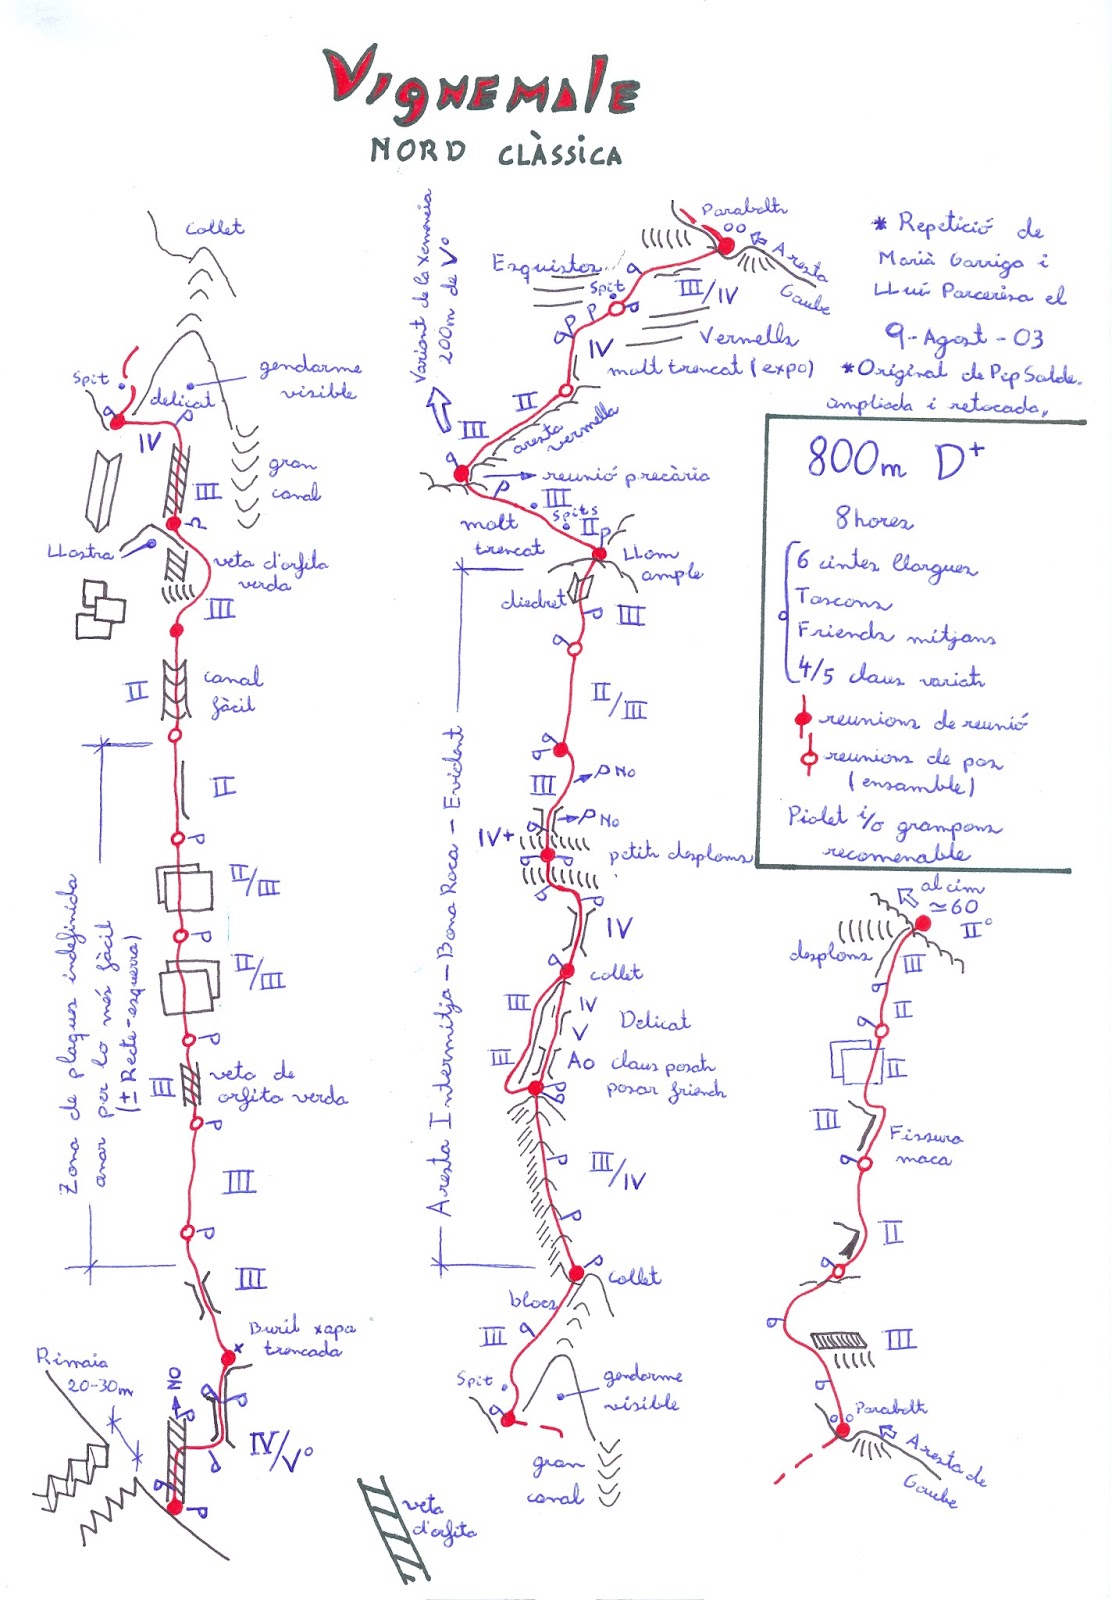 VIGNEMALE
NORD CLÀSSICA
Collet
Spit
delicat
gendarme
visible
IV
gran
canal
III
LLastra
veta d'orfita
verda
III
II
canal
fàcil
II
II/III
II/III
Zona de plaques indefinida
anar per lo més fàcil
(± Recte-esquerra)
III
veta de
orfita verda
III
III
Buril xapa
trencada
Rimaia
20-30m
NO
IV/Vº
Variant de la Xemeneia
200m de Vº
Parabolts
Aresta
Gaube
Esquistos
Spit
III/IV
Vermells
IV
molt trencat (expo)
II
III
aresta
vermella
reunió precària
III
Spits
II
molt
trencat
LLom
ample
diedret
III
II/III
III
NO
NO
IV+
petits desploms
IV
collet
III
IV
V
Delicat
III
Ao claus posats
posar friends
III/IV
Aresta Intermitja - Bona Roca - Evident
Collet
blocs
III
Spit
gendarme
visible
gran
canal
veta
d'orfita
* Repetició de
Marià Garriga i
LLuís Parcerisa el
9-Agost-03
* Original de Pep Solde.
ampliada i retocada.
800m D+
8 hores
6 cintes llargues
Tascons
Friends mitjans
4/5 claus variats
reunions de reunió
reunions de pas
(ensamble)
Piolet i/o grampons
recomenable
al cim
≃60
IIº
desploms
III
II
II
III
Fissura
maca
II
III
Parabolt
Aresta de
Gaube